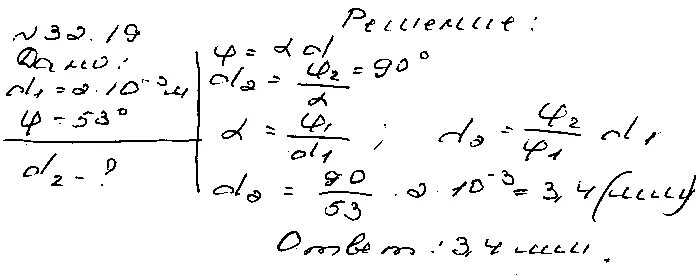 Решение:
№32.19
Дано:
d₁ = 2·10⁻³ м
φ = 53°
d₂ - ?
φ = αd
d₂ = φ₂/α = 90°
α = φ₁/d₁ ; d₂ = φ₂/φ₁ d₁
d₂ = 90/53 · 2·10⁻³ = 3,4 (мм)
Ответ: 3,4 мм.